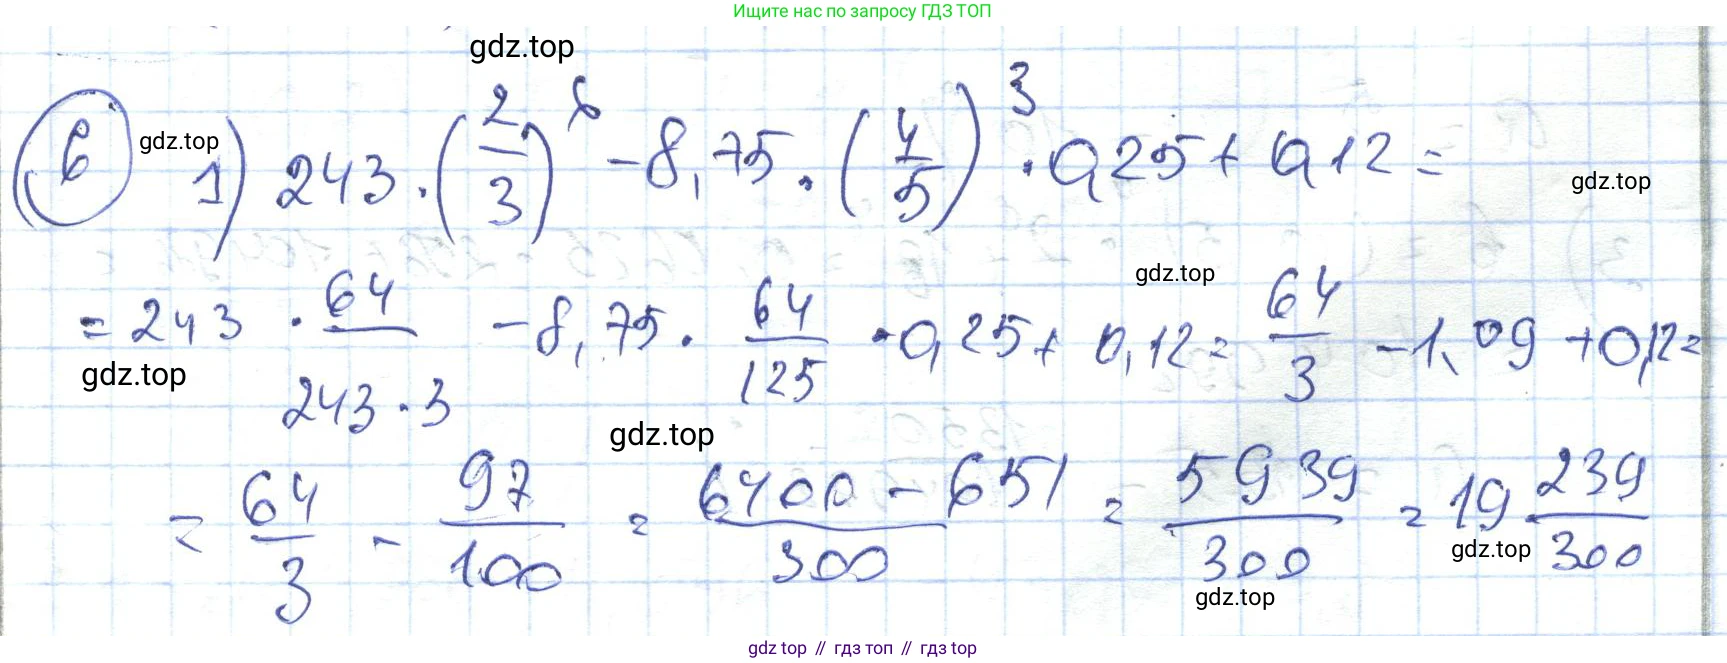 Ищите нас по запросу ГДЗ ТОП
gdz.top
6 gdz.top 1) 243 · (2/3)^6 - 8,75 · (4/5)^3 · 0,25 + 0,12 =
gdz.top
gdz.top
= 243 · 64/(243 · 3) - 8,75 · 64/125 · 0,25 + 0,12 = 64/3 - 1,09 + 0,12 =
gdz.top
gdz.top
= 64/3 - 97/100 = (6400 - 651)/300 = 5939/300 = 19 239/300
gdz.top
gdz.top
gdz.top // гдз топ // гдз top